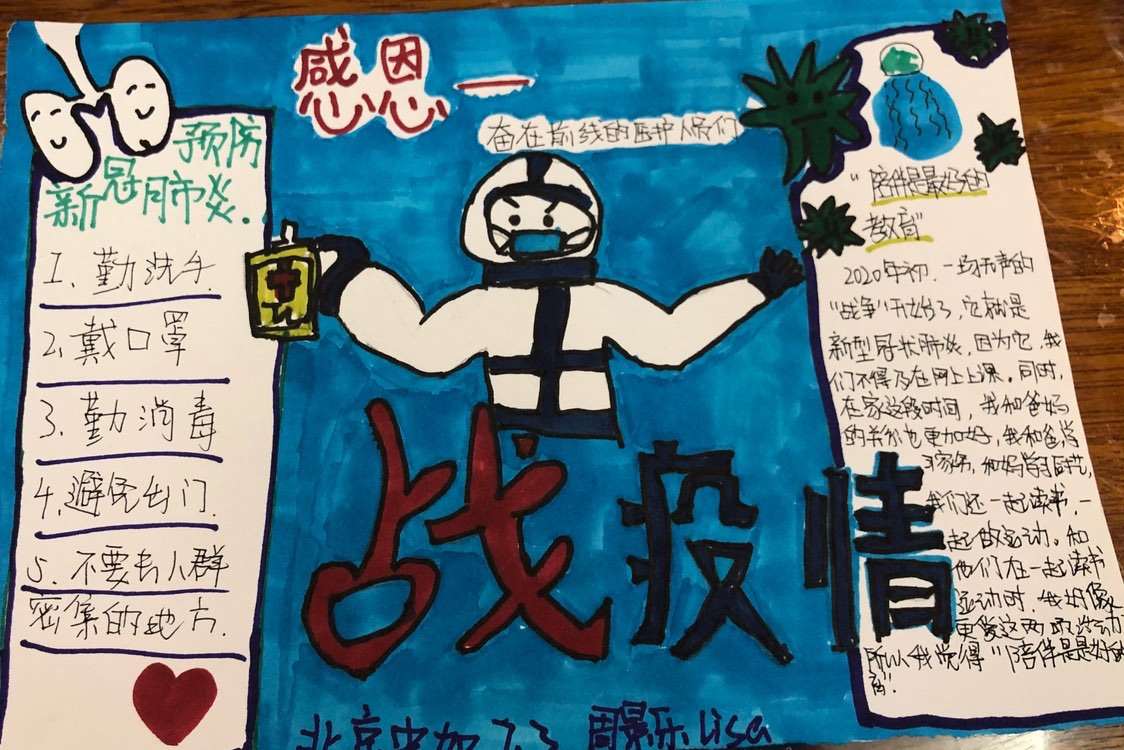 感恩—
奋在前线的医护人员们
预防
新冠肺炎.
1、勤洗手
2、戴口罩
3、勤消毒
4、避免出门
5、不要去人群
密集的地方.
战疫情
"陪伴是最好的
教育"
2020年初,一场无声的
"战争"开始了,它就是
新型冠状肺炎,因为它,我
们不得已在网上上课。同时,
在家这段时间,我和爸妈
的关系也更加好,我和爸爸
我们还一起读书,一
起做运动。和
他们在一起读书
运动时,我好像
更爱这两项活动
所以我觉得"陪伴是最好的
育!
北京中加 7.3 周景乐 Lisa